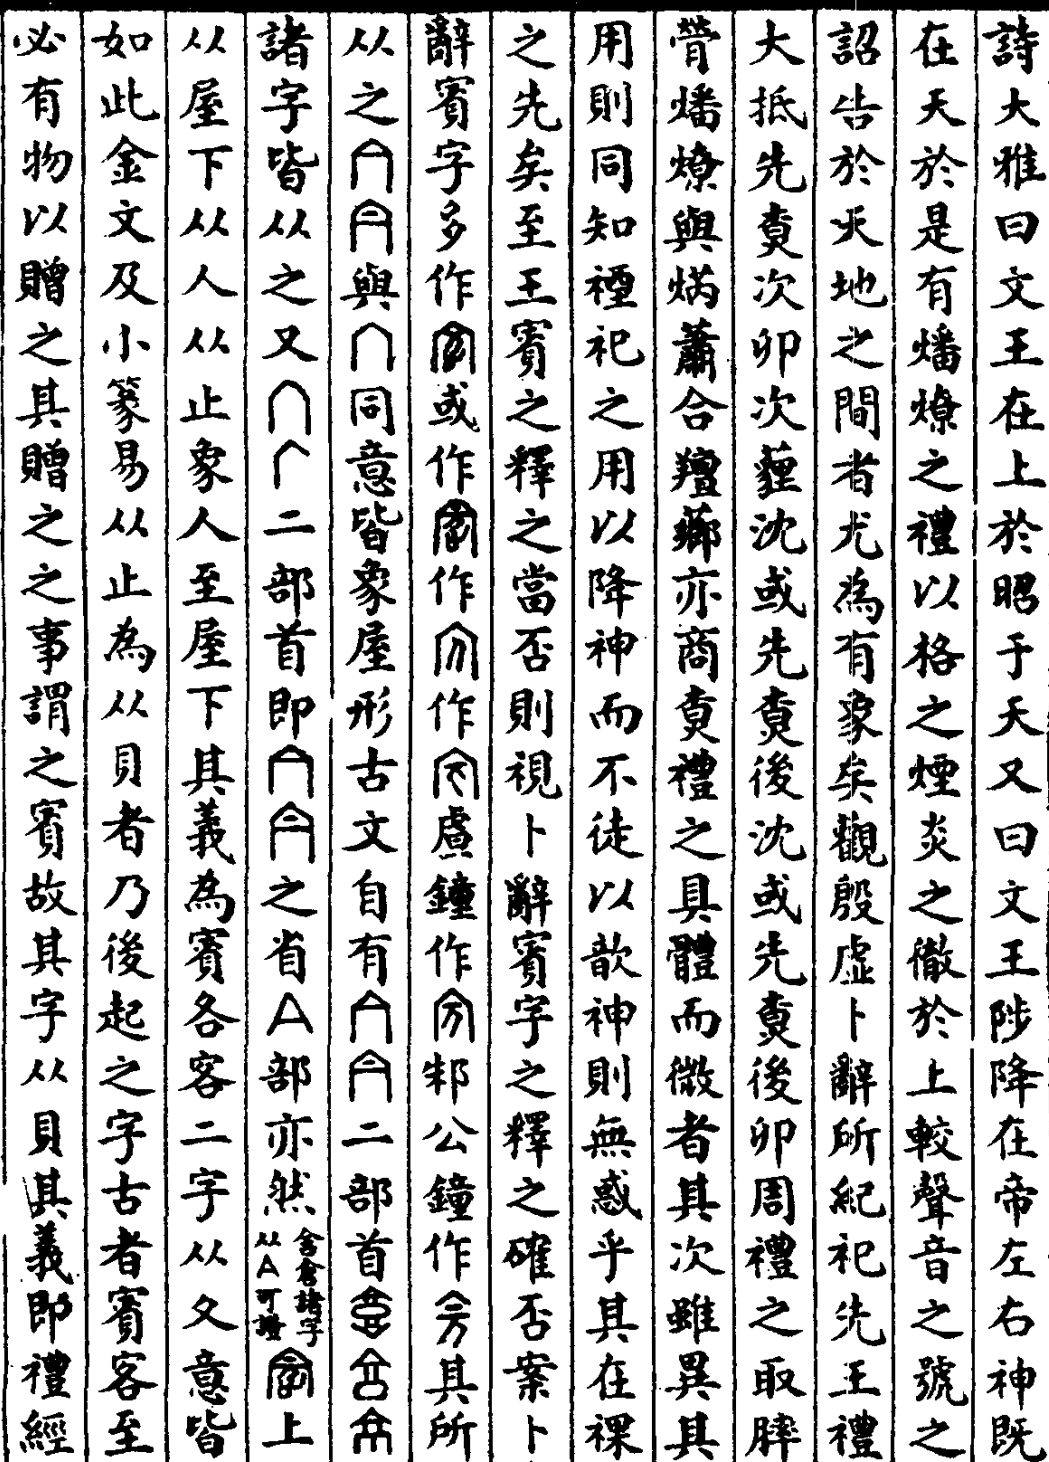 詩大雅曰文王在上於昭于天又曰文王陟降在帝左右神既
在天於是有燔燎之禮以格之煙炎之徹於上較聲音之號之
詔告於天地之間者尤為有象矣觀殷虛卜辭所紀祀先王禮
大抵先燎次卯次薶沈或先燎後沈或先燎後卯周禮之取膟
膋燔燎與焫蕭合羶薌亦商燎禮之具體而微者其次雖異其
用則同知禋祀之用以降神而不徒以歆神則無惑乎其在祼
之先矣至王賓之釋之當否則視卜辭賓字之釋之確否案卜
辭賓字多作或作作作鐘作邾公鐘作其所
从之與同意皆象屋形古文自有二部首
諸字皆从之又二部首即之省亼部亦然舍倉諸字从亼可證上
从屋下从人从止象人至屋下其義為賓各客二字从夂意皆
如此金文及小篆易从止為从貝者乃後起之字古者賓客至
必有物以贈之其贈之之事謂之賓故其字从貝其義即禮經